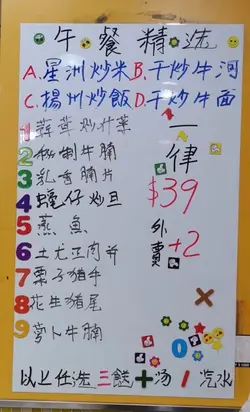 午餐精选
A.星洲炒米 B.干炒牛河
C.楊州炒飯 D.干炒牛面
一律
$39
外賣+2
2 秘制牛腩
3 乳香腩片
4 蠔仔炒旦
5 蒸魚
6 土尤正肉并
7 栗子猪手
8 花生猪尾
9 萝卜牛腩
0
以上任选三餸十汤 / 汽水